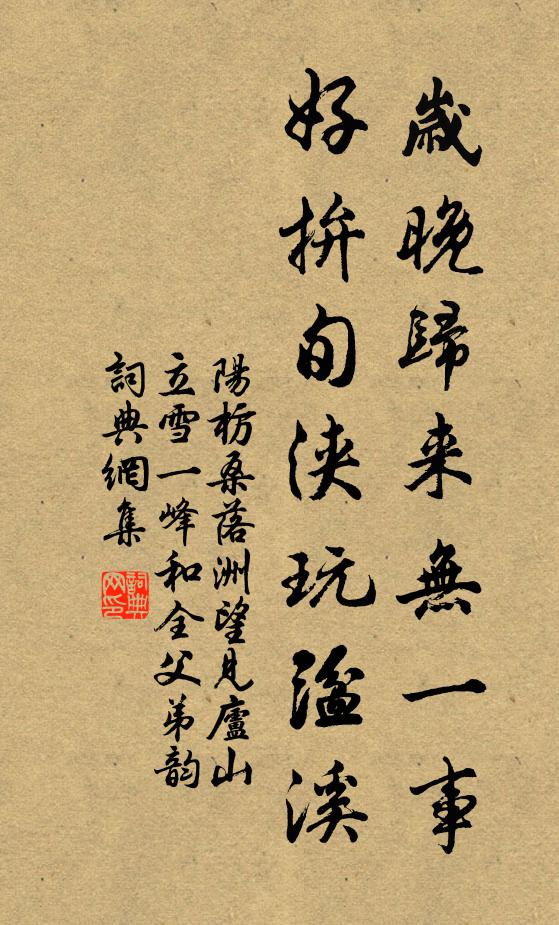 歲晚歸来無一事
好拚旬浹玩湓溪
陽枋桑落洲望見廬山
立雪一峰和全父弟韵
詞典網集
詞典网印